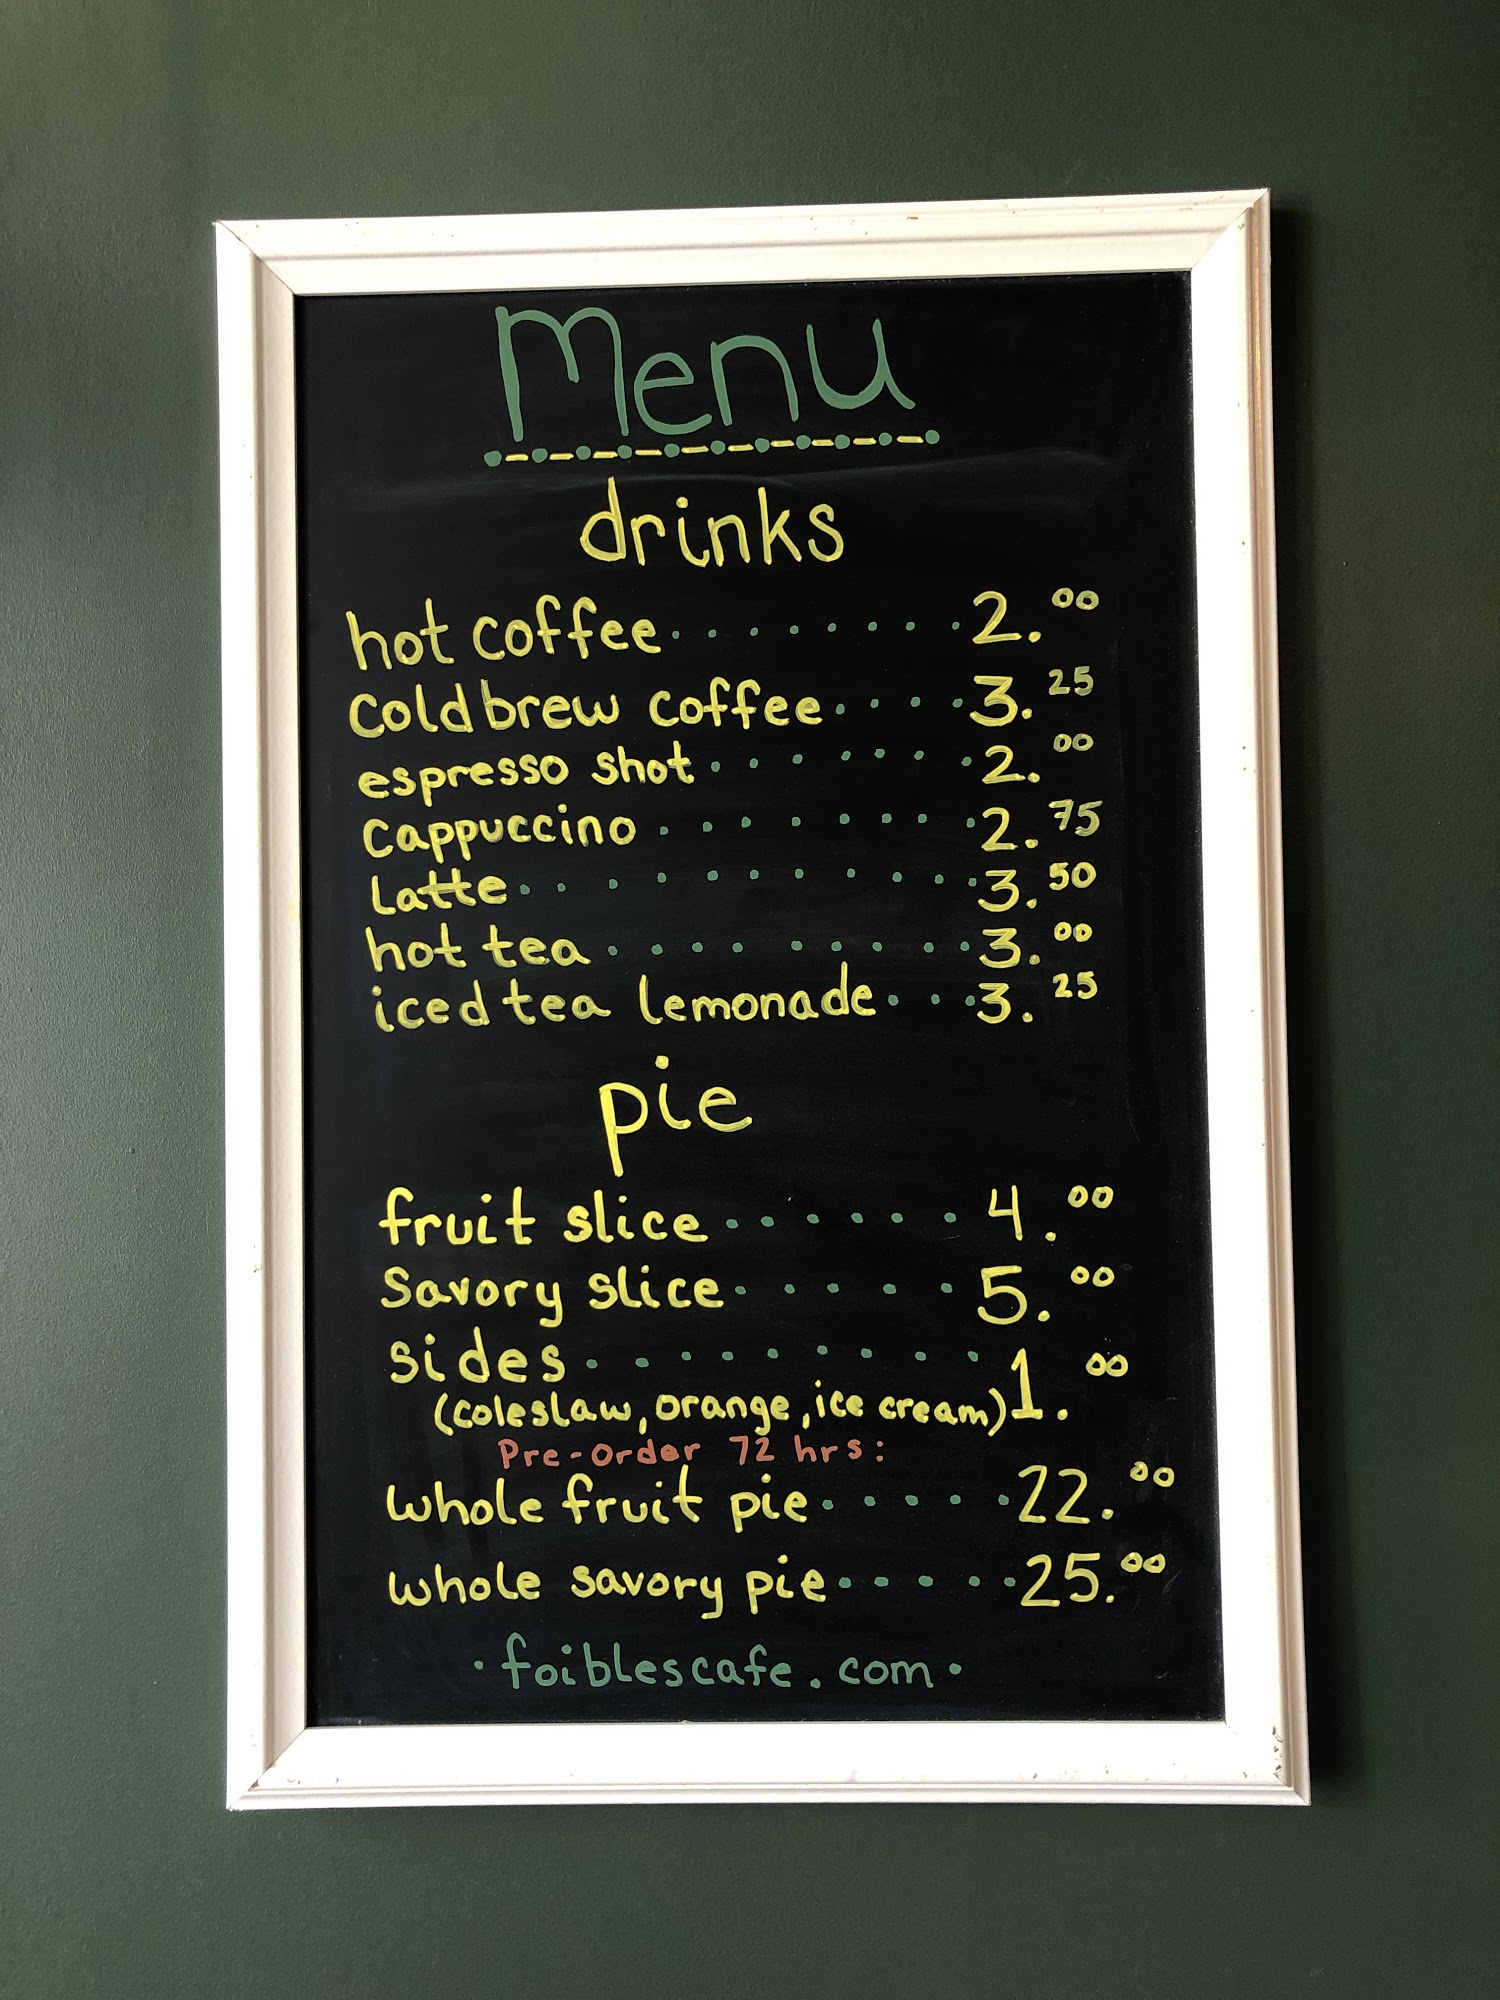 Menu
drinks
hot coffee ........ 2.00
cold brew coffee .... 3.25
espresso shot ....... 2.00
cappuccino ........ 2.75
latte .......... 3.50
hot tea ......... 3.00
iced tea lemonade ... 3.25
pie
fruit slice ...... 4.00
savory slice ..... 5.00
sides ......... 1.00
(coleslaw, orange, ice cream)
Pre-order 72 hrs:
whole fruit pie ..... 22.00
whole savory pie ..... 25.00
· foiblescafe.com ·